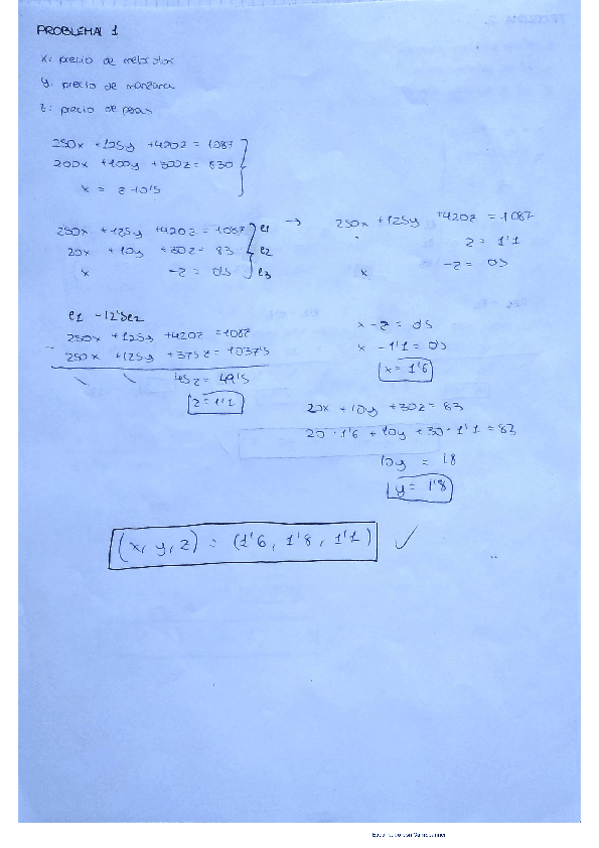 PROBLEMA 1
x: precio de melocotón
y: precio de manzana
z: precio de peras
250x +125y +420z = 1087
200x +100y +300z = 830
x = z + 0'5
250x +125y +420z = 1087 e1
20x + 10y +30z = 83 e2
x -z = 0'5 e3
→ 250x +125y +420z = 1087
z = 1'1
x -z = 0'5
e1 -12'5e2
250x +125y +420z = 1087
- 250x +125y +375z = 1037'5
45z = 49'5
z = 1'1
x - z = 0'5
x - 1'1 = 0'5
x = 1'6
20x + 10y + 30z = 83
20 · 1'6 + 10y + 30 · 1'1 = 83
10y = 18
y = 1'8
(x, y, z) = (1'6, 1'8, 1'1) ✓